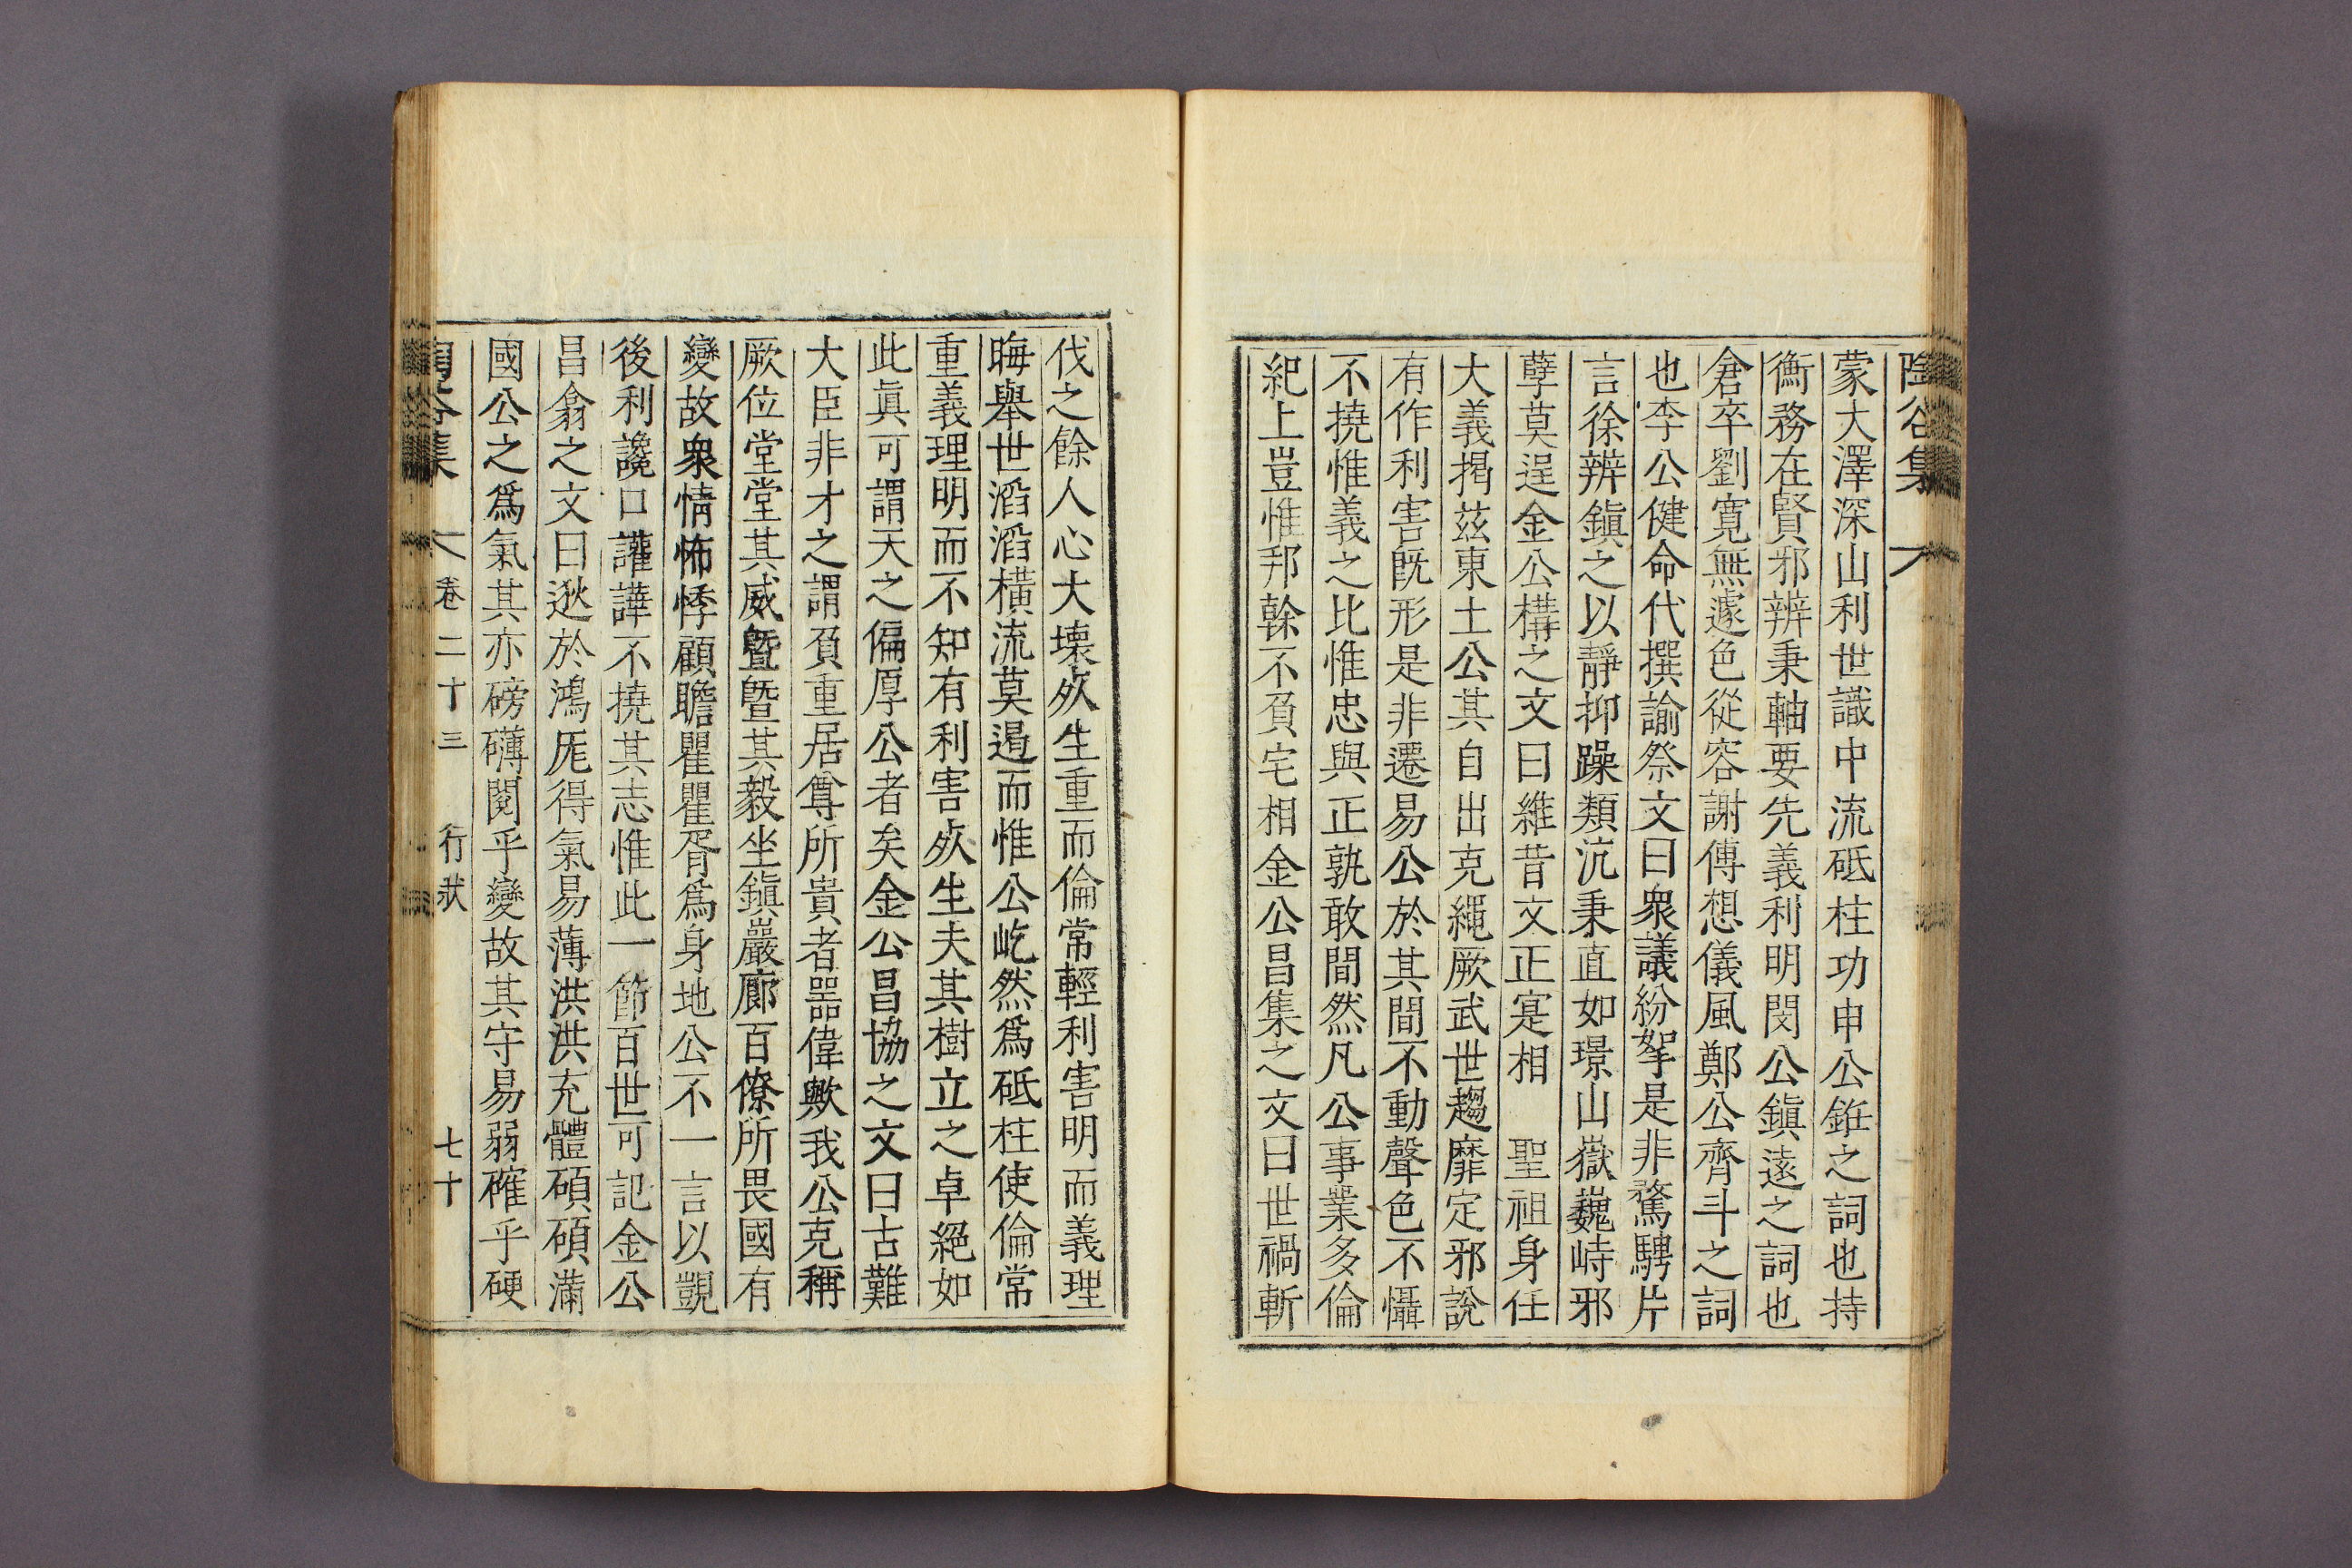 陶谷集
蒙大澤深山利世識中流砥柱功申公銋之詞也持
衡務在賢邪辨秉軸要先義利明閔公鎭遠之詞也
倉卒劉寬無遽色從容謝傅想儀風鄭公齊斗之詞
也李公健命代撰諭祭文曰衆議紛挐是非騖騁片
言徐辨鎭之以靜抑躁類沆秉直如璟山嶽巍峙邪
孽莫逞金公構之文曰維昔文正寔相　聖祖身任
大義掲茲東土公其自出克繩厥武世趨靡定邪說
有作利害旣形是非遷易公於其間不動聲色不懾
不撓惟義之比惟忠與正孰敢間然凡公事業多倫
紀上豈惟邦榦不負宅相金公昌集之文曰世禍斬
伐之餘人心大壞死生重而倫常輕利害明而義理
晦舉世滔滔橫流莫遏而惟公屹然爲砥柱使倫常
重義理明而不知有利害死生夫其樹立之卓絕如
此眞可謂天之偏厚公者矣金公昌協之文曰古難
大臣非才之謂負重居尊所貴者噐偉歟我公克稱
厥位堂堂其威曁曁其毅坐鎭巖廊百僚所畏國有
變故衆情怖悸顧瞻瞿瞿胥爲身地公不一言以覬
後利讒口讙譁不撓其志惟此一節百世可記金公
昌翕之文曰逖於鴻厖得氣易薄洪洪充體碩碩滿
國公之爲氣其亦磅礴閱乎變故其守易弱確乎硬
陶谷集　卷二十三　行狀　七十